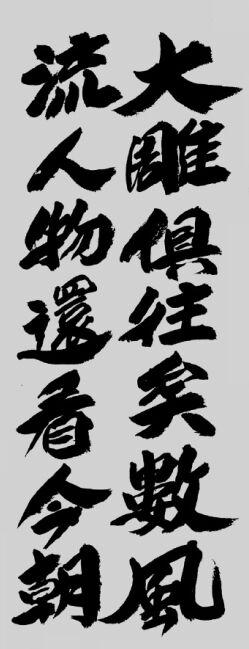 大雕俱往矣數風
流人物還看今朝